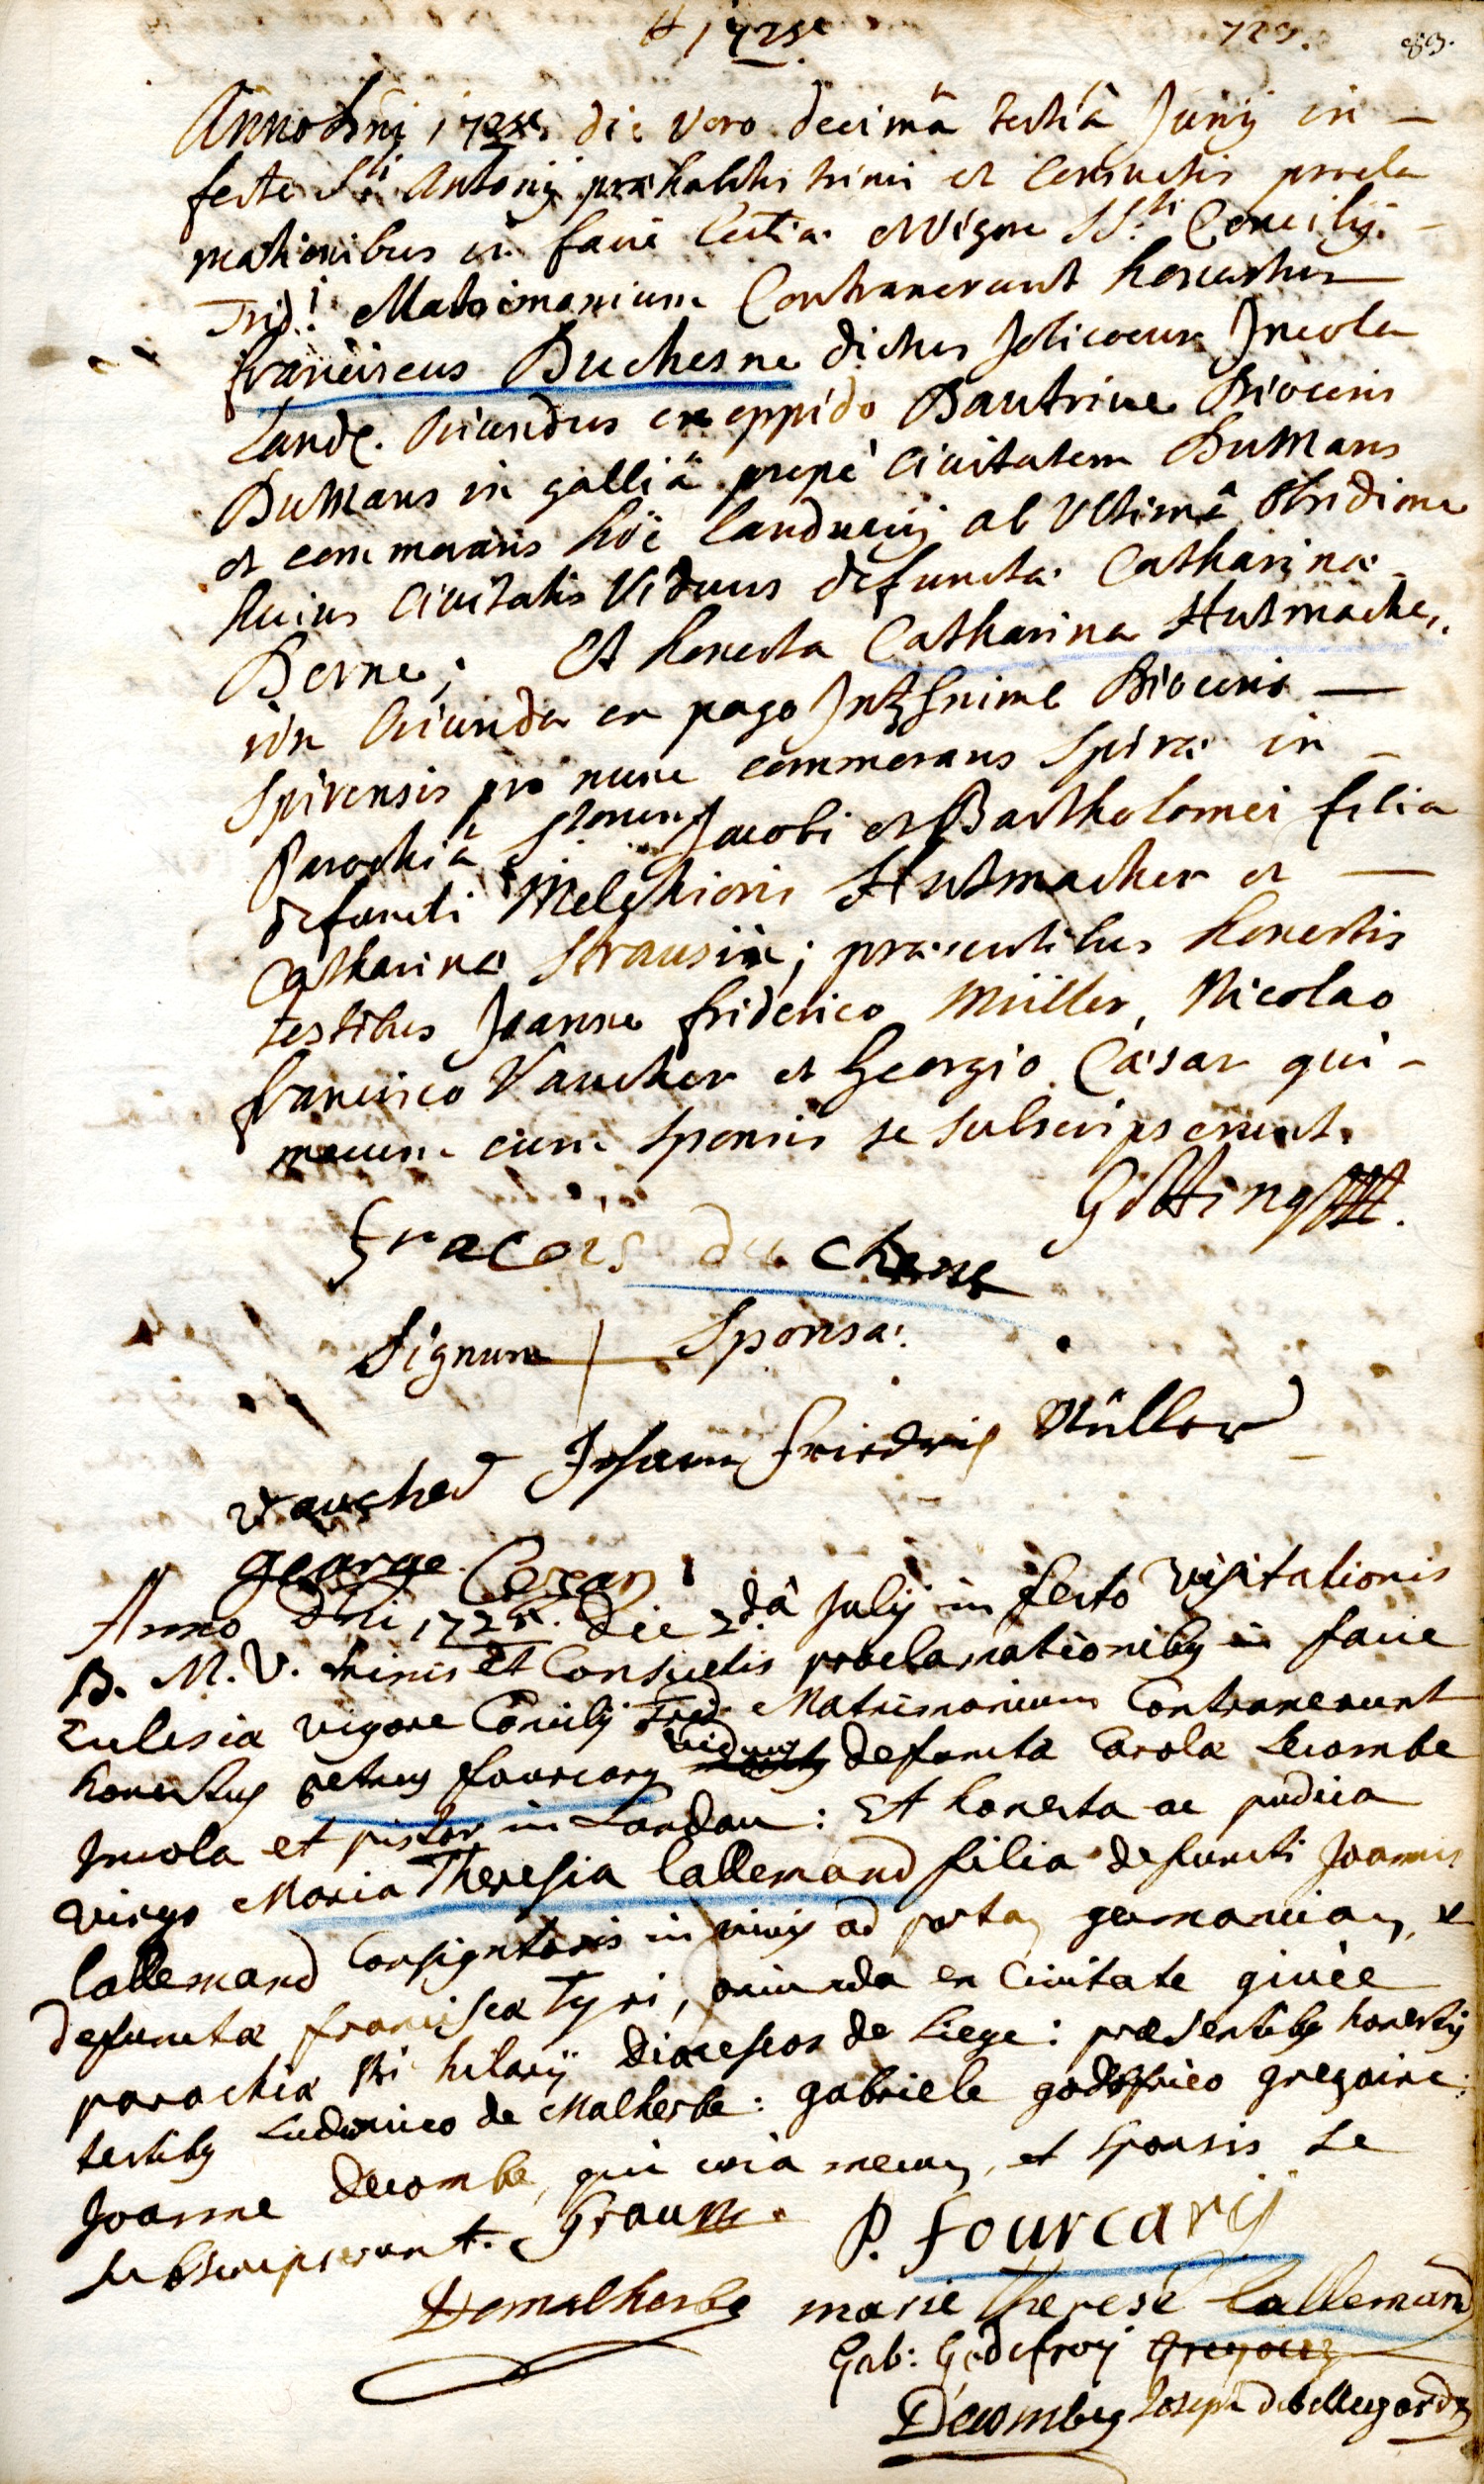 # 1725
729. 89.
Anno Dnj 1725 die vero decimâ tertiâ Junij in -
festo Sti Antonij præhabitis trinis et consuetis procla
mationibus in facie Eccliæ et vigore SSti Concilij -
Trid: Matrimonium Contraxerunt honestus
franciscus Duchesne dictus Jolicoeur Jncola
Land. Oriundus ex oppido Dautrive Diocesis
DuMans in galliâ propè civitatem DuMans
et commorans hôc Landavij ab Ultimâ Obsidione
huius civitatis Viduus defunctæ Catharinæ
Berne; Et honesta Catharina Hutmache,,
rin Oriunda ex pago Diocesis —
Spirensis pro nunc commorans Spiræ in -
Parochiâ Jacobi et Bartholomei filia
defuncti Melchioris Hutmacher et —
Catharinæ Strausin; præsentibus honestis
testibus Joanne friderico Müller, Nicolao
francisco Vaucher et Georgio Cæsar qui -
mecum cum sponsis se subscripserunt.
Götting
fracois du chesne
Signum + Sponsæ.
vaucher Johann Friedrich Müller
george Cezar
Anno Dni 1725. die 2dâ Julij in festo Visitationis
B. M. V. trinis et Consuetis proclamationibus in facie
Eclesiæ vigore Concilij Trid. Matrimonium Contraxerunt
honestus petrus fourcary viduus defunctæ Carolæ Decombe
Jncola et pistor in Landau: Et honesta ac pudica
virgo Maria Theresia lallemand filia defuncti Joannis
lallemand Consignatoris in vivis ad portam germanicam, et
defunctæ franciscæ Tyri, oriunda ex Civitate givèe
parochiæ Sti hilarij Diœceseos de Liege: præsentibus honestis
testibus Ludovico de Malherbe: gabriele godefrico gregoire:
Joanne Decombe, qui unà mecum, et Sponsis se
subscripserunt. Graus
P. fourcarij
Demalherbe marie therese lallemand
Gab: Godefroij Gregoire
Decombes Joseph de bellegarde